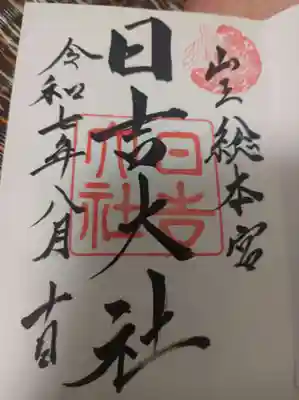 山王総本宮
日吉大社
日吉大社
令和七年八月十日